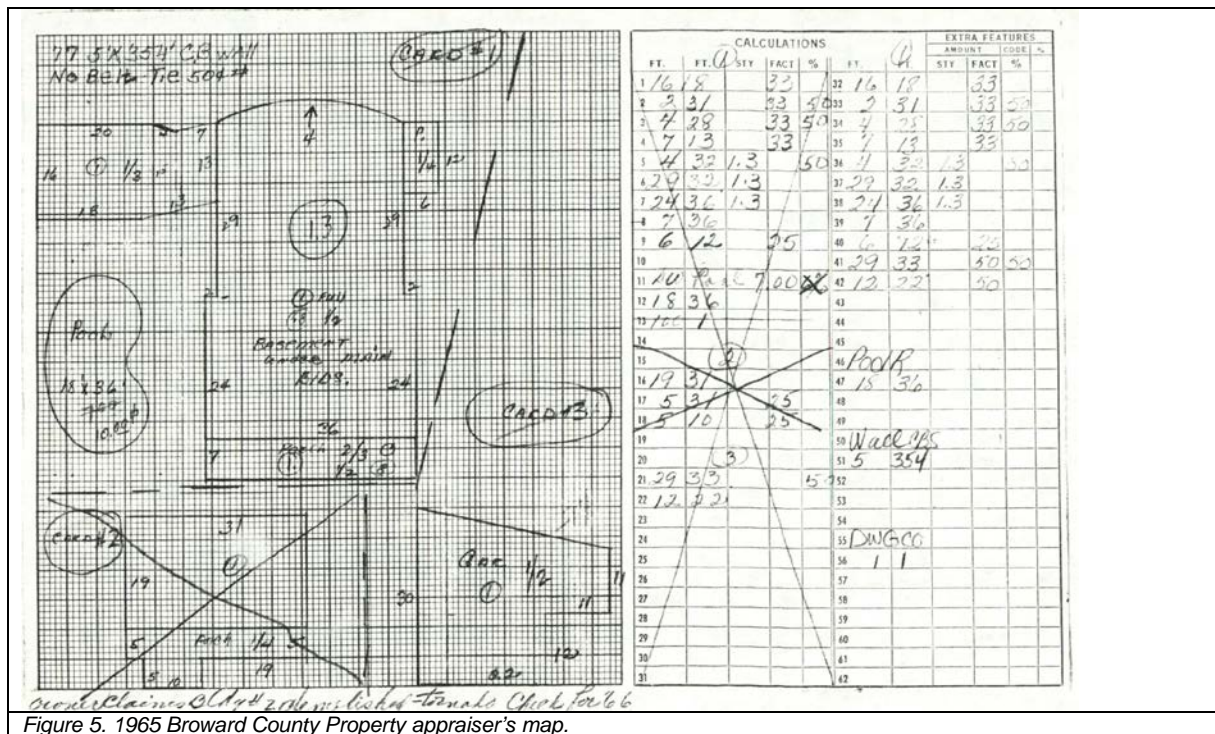 77 5'X354' C.B. Wall
No Belt-Tie 504#
CARD #1
20 5 7
4
P.
16 ① 1/3 13
1/4 12
18 13
6
29 1.3 29
21 2
① Full
1/2
BASEMENT
under MAIN
BLDG.
Pool
18'X36'
10.00
24 24
CARD #3
36
7 2/3
① 1/2
CARD #2
31
①
19
5 Porch 1/4 5
5 10 19
Gar 1/2
①
30 11
11
12
22
owner Claims Bldg # 2 demolished - tornado Check For 66
CALCULATIONS
EXTRA FEATURES
AMOUNT CODE %
FT. FT. STY FACT % FT. STY FACT %
1 16 18 33 32 16 18 33
2 2 31 33 50 33 2 31 33 50
3 4 28 33 50 34 4 28 33 50
4 7 13 33 35 7 13 33
5 4 32 1.3 50 36 4 32 1.3 50
6 29 32 1.3 37 29 32 1.3
7 24 36 1.3 38 24 36 1.3
8 7 36 39 7 36
9 6 12 25 40 6 12 25
10 41 29 33 50 50
11 Pool 7.00 42 12 22 50
12 18 36 43
13 100 1 44
14 45
15 ② 46 PoolR
16 19 31 47 18 36
17 5 31 25 48
18 5 10 25 49
19 50 Wall CBS
20 ③ 51 5 354
21 29 33 5 52
22 12 22 53
23 54
24 55 DWGCO
25 56 1 1
26 57
27 58
28 59
29 60
30 61
31 62
Figure 5. 1965 Broward County Property appraiser's map.